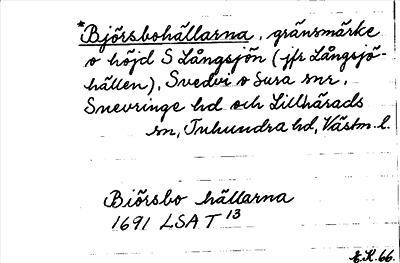 *Björsbohällarna, gränsmärke
o höjd S Långsjön (jfr Långsjö-
hällen), Svedvi o Sura snr,
Snevringe hd och Lillhärads
sn, Tuhundra hd, Västm. l.
Biörsbo hällarna
1691 LSA T 13
E.K. 66.